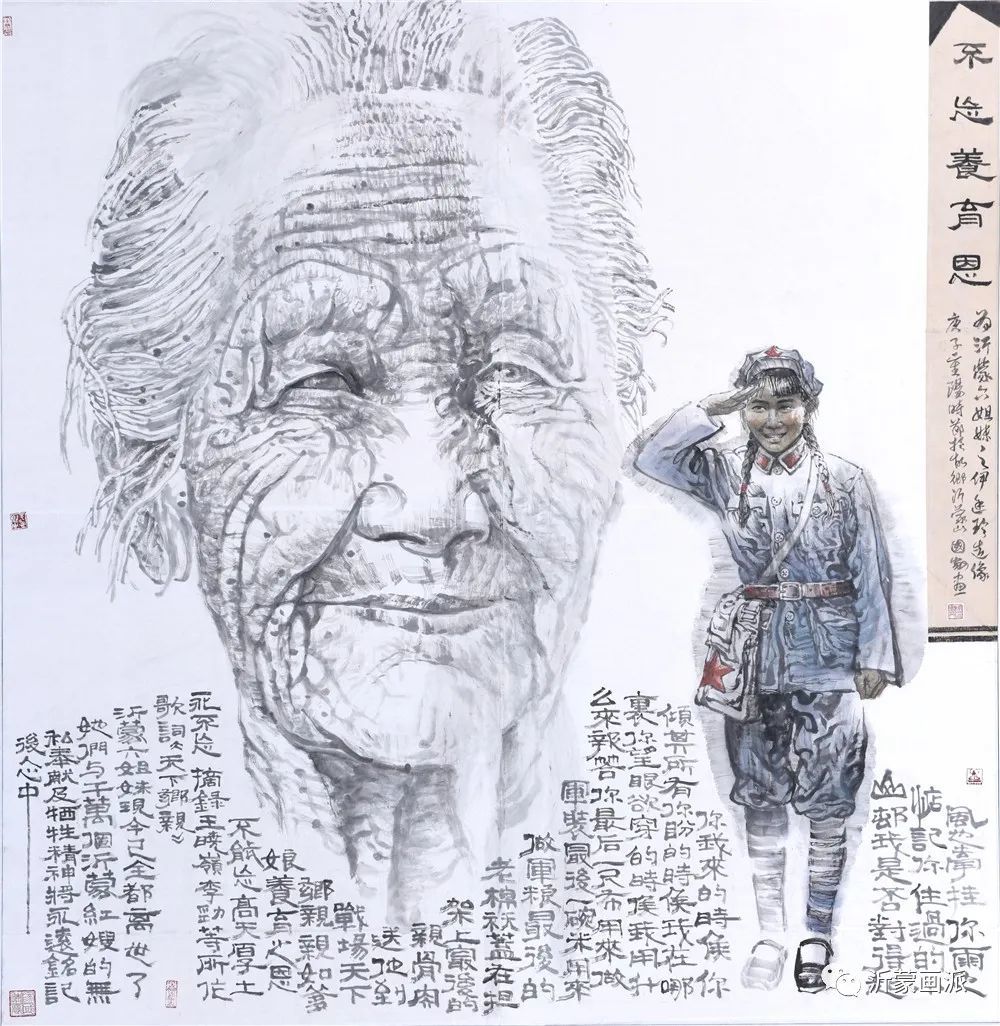 不忘養育恩
为沂蒙六姐妹之伊廷珍造像
庚子重陽時節於故鄉沂蒙山 國画
風牽挂你雨裏
惦記你住過的
山邨我是否對得起
你我來的時候你
傾其所有你盼的時候我在哪
裏你望眼欲穿的時候我用什
么來報答你最后一尺布用來做
軍裝最後一碗米用來
做軍糧最後的
老棉袄蓋在担
架上最後的
親骨肉
送他到
戰場天下
鄉親親如爹
娘養育之恩
不能忘高天厚土
永不忘 摘錄王曉嶺李勁等所作
歌詞《天下鄉親》
沂蒙六姐妹現今已全都離世了
她們与千萬個沂蒙紅嫂的無
私奉献及牺牲精神將永遠銘記
後人心中
沂蒙画派